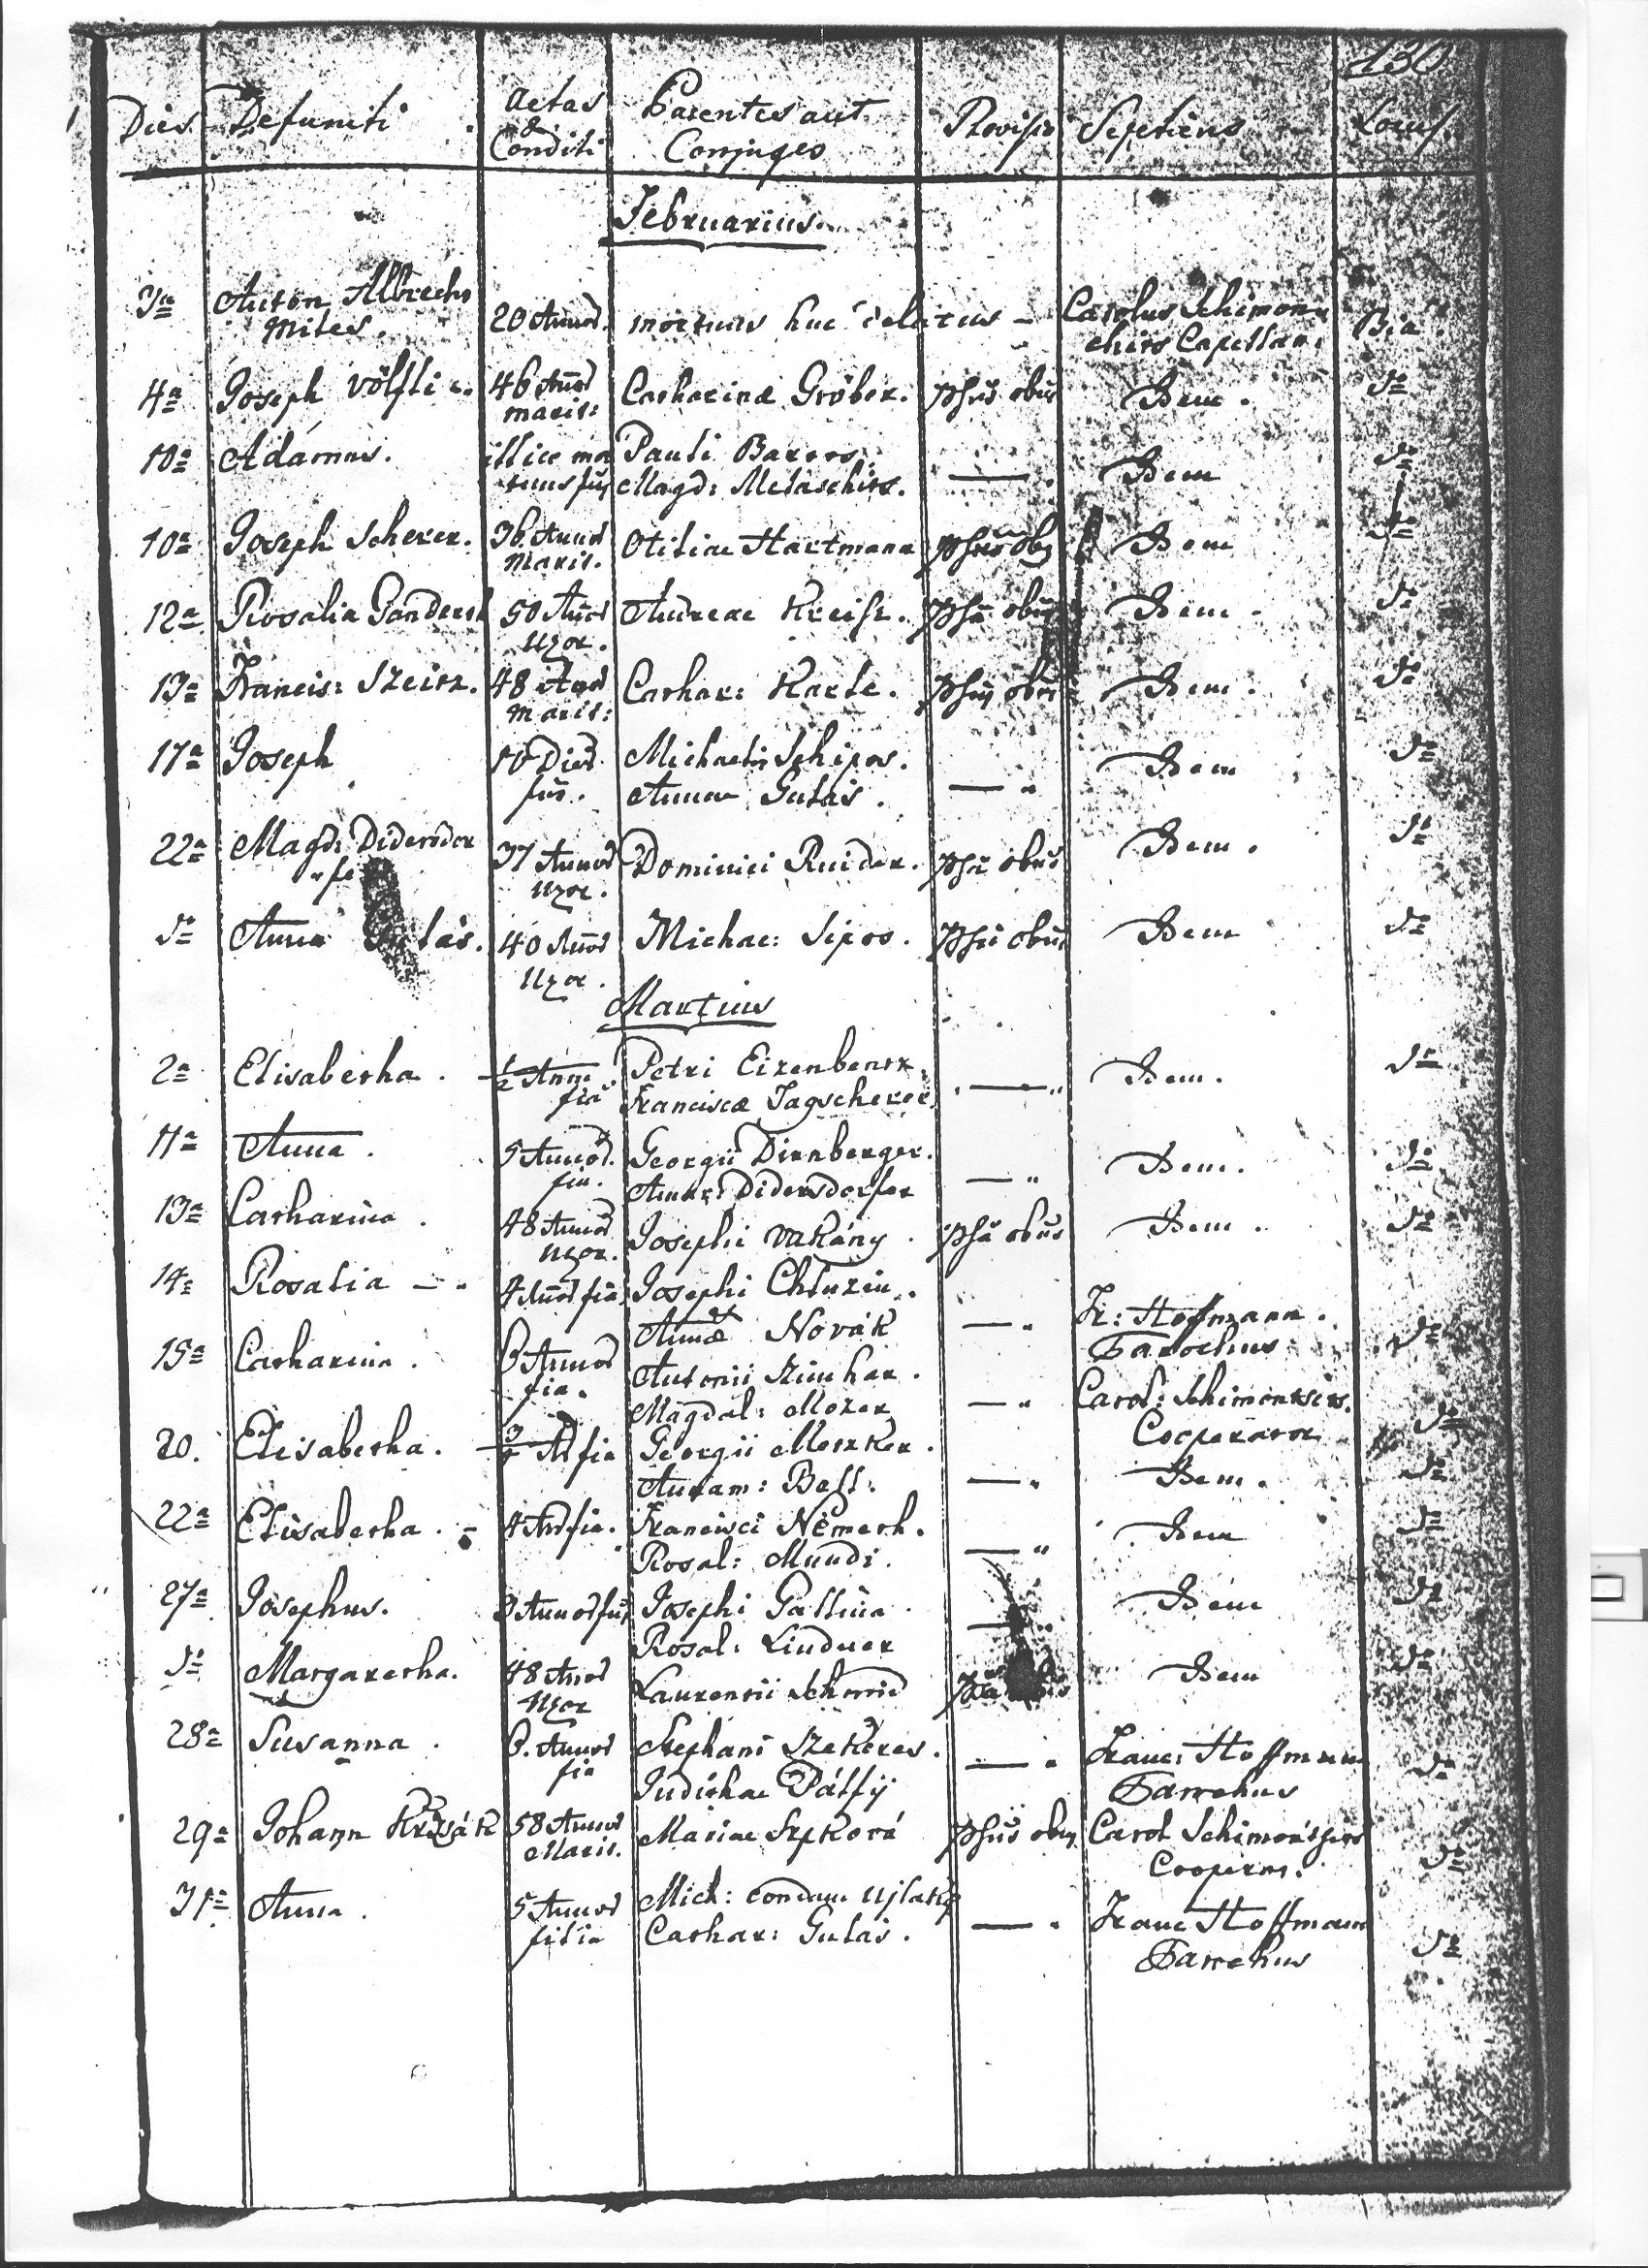 130
Dies Defuncti Aetas & Conditi Parentes aut Conjuges Provisio Sepeliens Locus
Februarius
3a Anton Albrecht miles. 20 Annor. mortuus huc delatus - Carolus Schimon chits Capellan: Bia.
4a Joseph Völfli 46 Anor marit: Catharinæ Gröber. Idem. do
10a Adámus. illice mor tuus fil Pauli Magd: Metaschits. — Idem do
10a Joseph Scherer. 36 Annor Marit. Otiliae Hartmann Idem do
12a Rosalia 50 Anor Uxor. Andreae Kreisz. Idem do
13a Francis: Szeitz. 48 Anor Marit: Cathar: Karle. Idem. do
17a Joseph 10 Dier. fiūs. Michaelis Schipos. Annae Gulás. — Idem do
22a Magd: Didersdor fer 37 Annor Uxor. Dominici Ruider. Idem. do
do Anna Gulás. 40 Anor Uxor. Michae: Sipos. Idem do
Martius
2a Elisabetha. ½ Anni fia Petri Eizenbeitz Franciscæ Tagscherer. — Idem. do
11a Anna. 5 Annor. fia. Georgii Dirnberger. Annæ: Didersdorfer — Idem. do
13a Catharina. 48 Annor Uxor. Josephi Vakány. Idem. do
14a Rosalia - 4 Anor fia Josephi Annæ Novák — Fr: Hoffmann. Parochus do
15a Catharina. 6 Annor fia. Antonii Magdal: Mozer — Carol: Schimontsits. Cooperator do
20. Elisabetha. Ani fia Georgii Annam: — Idem. do
22a Elisabetha. - 4 Anor fia. Francisci Németh. Rosal: Mundi. — Idem do
27a Josephus. 3 Annor fiūs Josephi Gallina Rosal: Lindner — Idem do
do Margaretha. 48 Anor Uxor Laurentii Schmid Idem do
28a Susanna. 6. Annor fia Stephani Szekeres. Judithae Pálfÿ — Franc: Hoffmann Parochus do
29a Johann 58 Annor Marit. Mariae Carol Schimontsits Cooperat. do
31a Anna. 5 Annor filia Mich: condam Ujlaky Cathar: Gulás. — Franc Hoffmann Parochus do